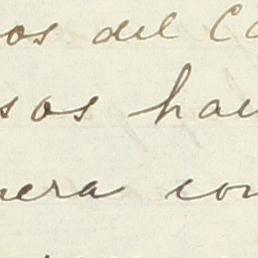 os del Ca
sos hac
nera con